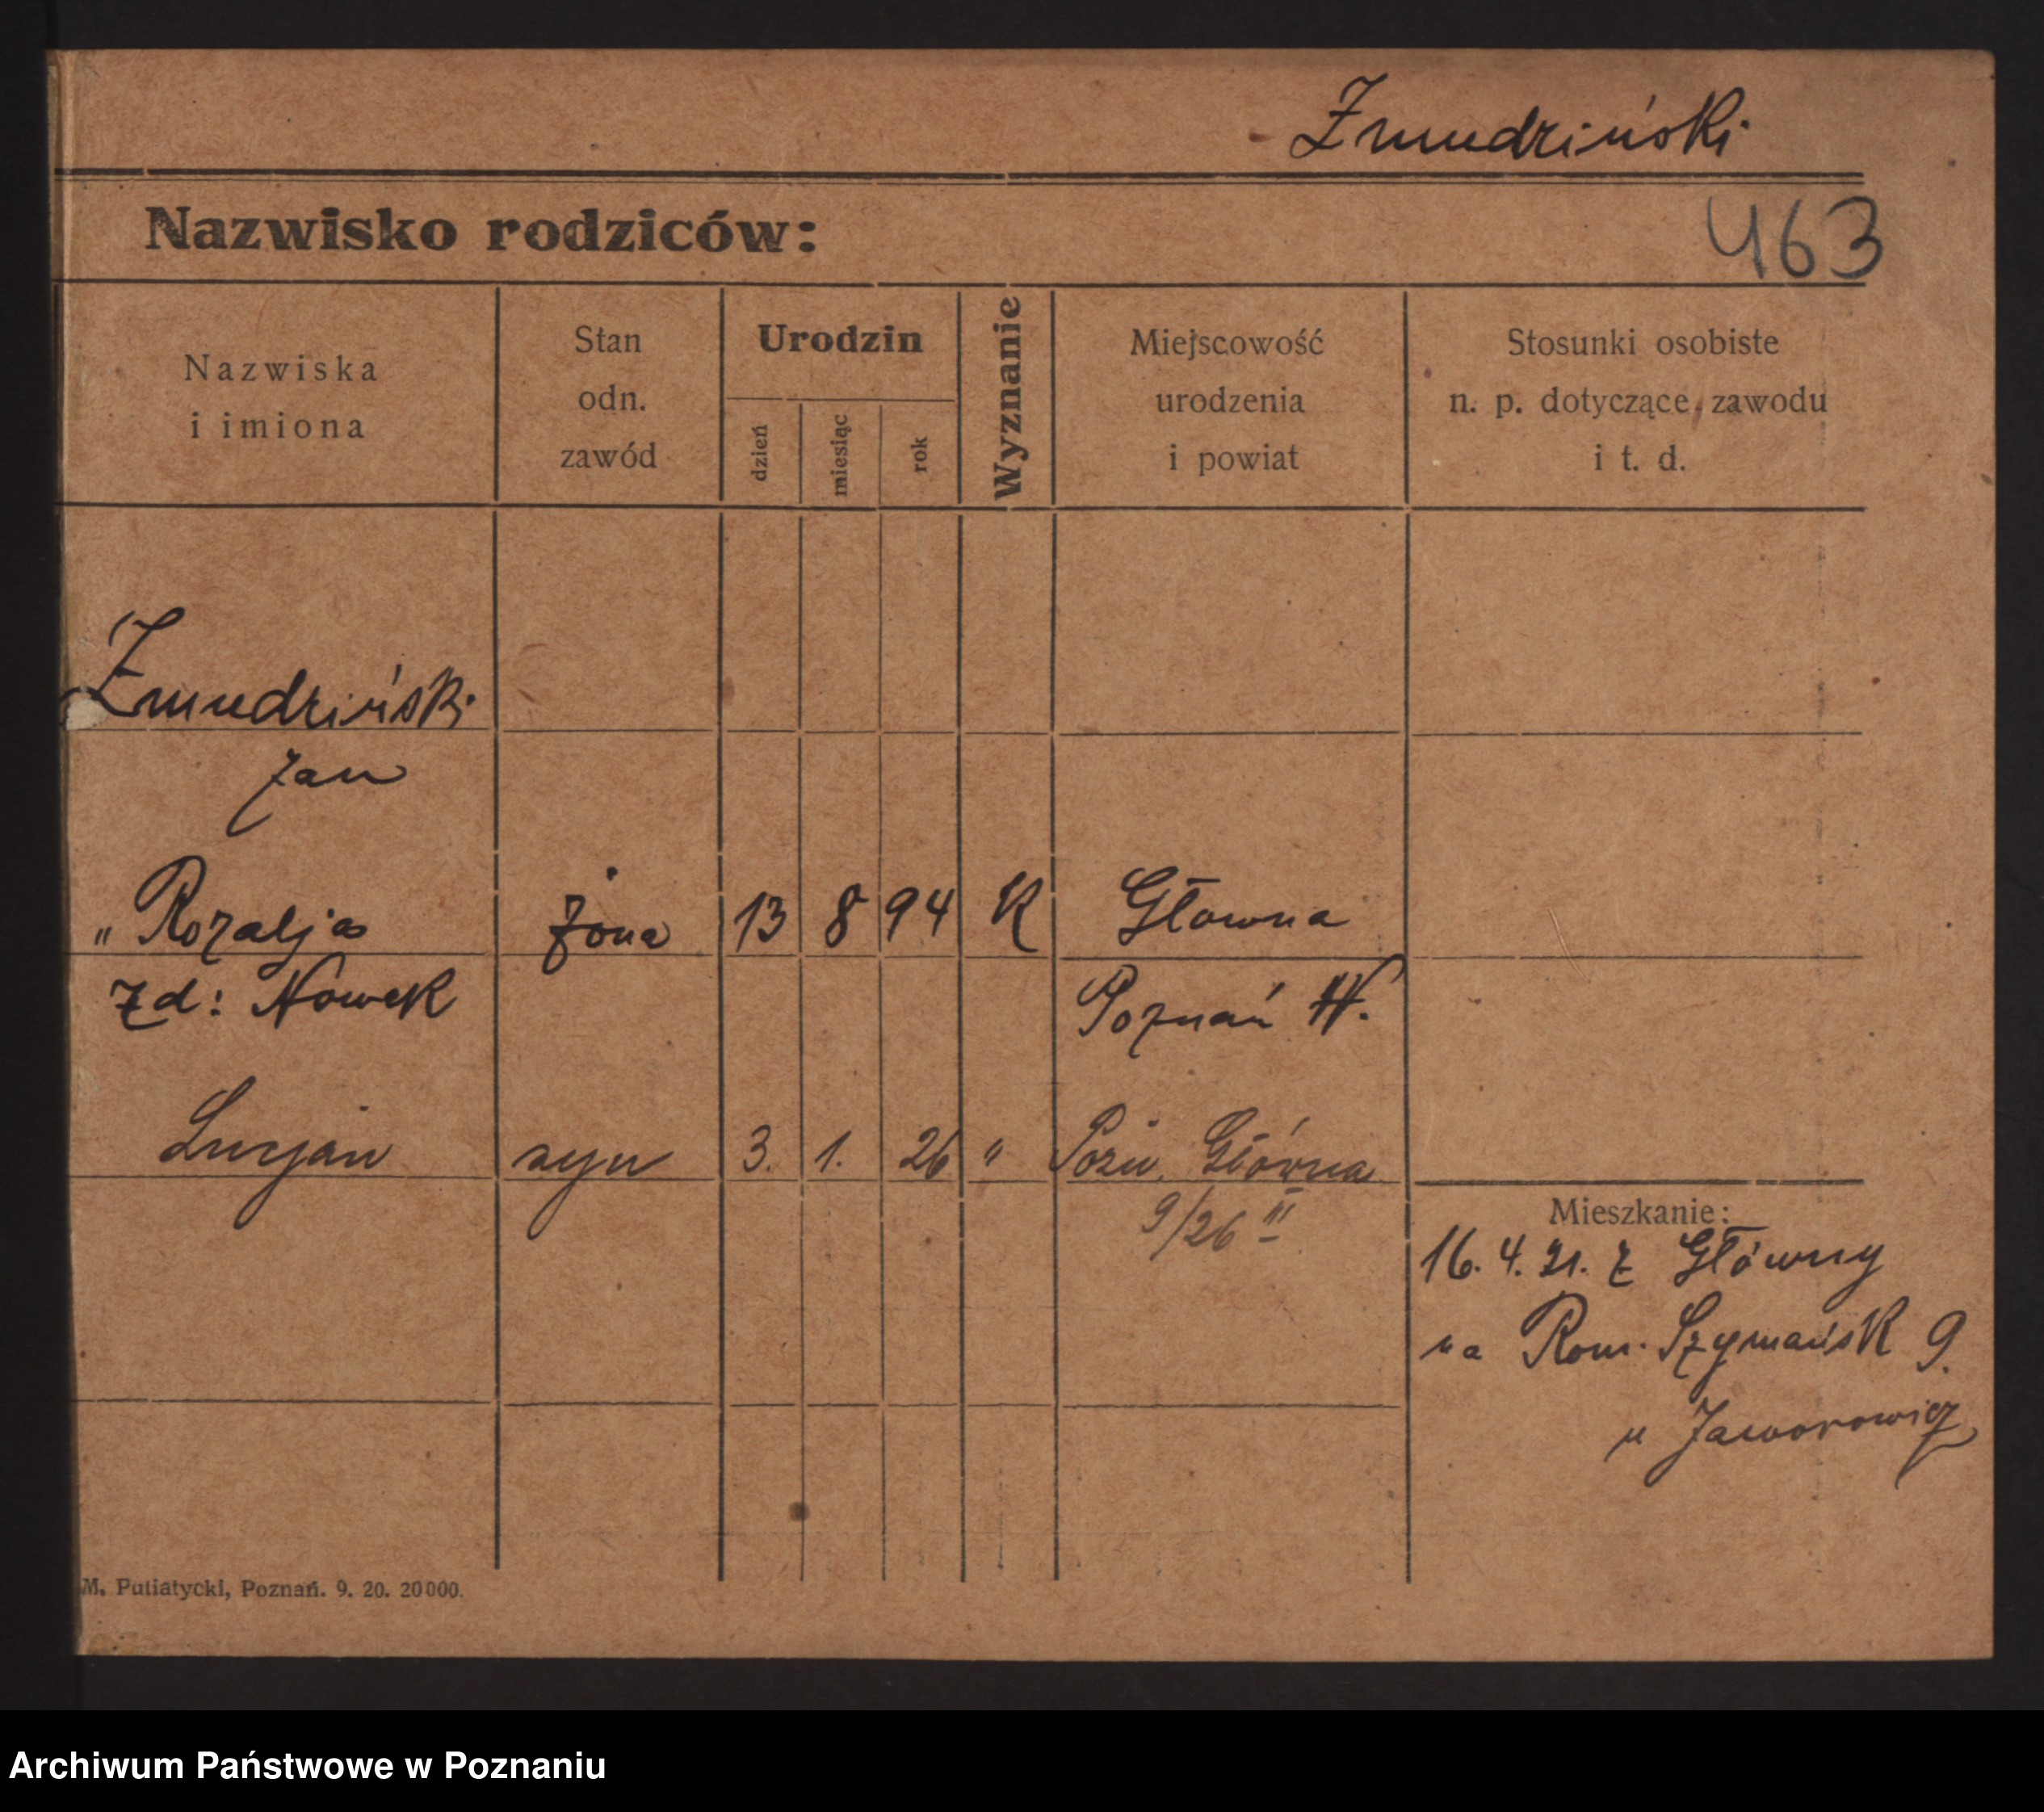 Zmudziński
Nazwisko rodziców:
463
Nazwiska
i imiona
Stan
odn.
zawód
Urodzin
dzień
miesiąc
rok
Wyznanie
Miejscowość
urodzenia
i powiat
Stosunki osobiste
n. p. dotyczące zawodu
i t. d.
Zmudziński
Jan
" Rozalja żona 13 8 94 K Głowna
zd: Nowek Poznań W.
Lucjan syn 3. 1. 26 " Pozn. Główna
9/26 III
Mieszkanie:
16. 4. 21. z Główny
na Rom. Szymańsk 9.
u Jaworowicz
M. Putiatycki, Poznań. 9. 20. 20000.
Archiwum Państwowe w Poznaniu